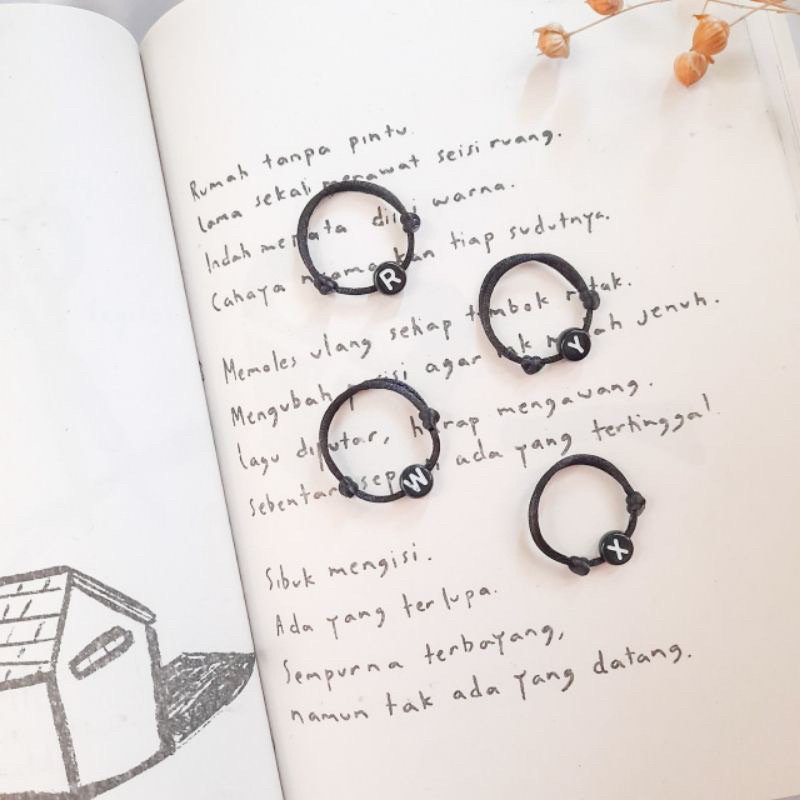 Rumah tanpa pintu.
lama sekali merawat seisi ruang.
Indah warna.
Cahaya tiap sudutnya.
Memoles ulang setiap tembok retak.
Mengubah posisi agar tak mudah jenuh.
lagu diputar, harap mengawang.
Sebentar ada yang tertinggal.
Sibuk mengisi.
Ada yang terlupa.
Sempurna terbayang,
namun tak ada yang datang.
R
Y
W
X